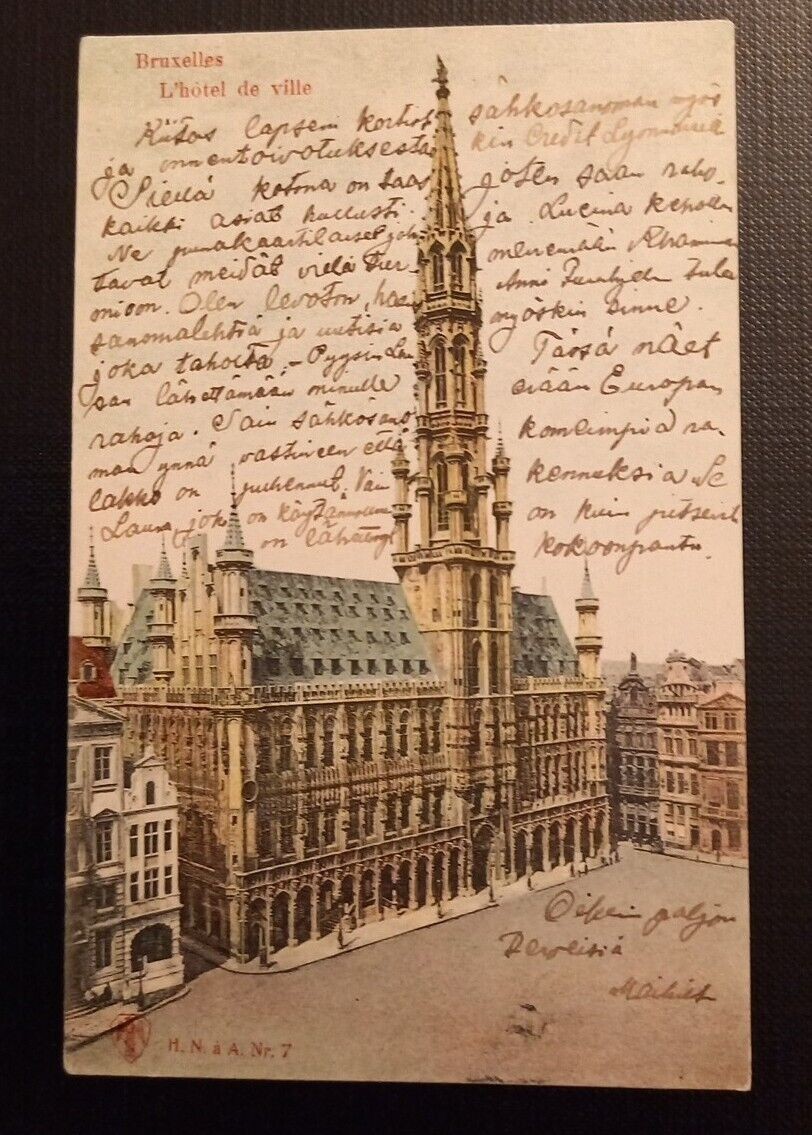 Bruxelles
L'hôtel de ville
Kiitos lapseni kortist
ja onnentoivotuksesta
Siellä kotona on taas
kaikki asiat hullusti.
Ne punakaartilaiset joh
tavat meidät vielä tur
mioon. Olen levoton, kas
sanomalehtiä ja uutisia
joka taholta, – Pyysin Lau
san lähettämään minulle
rahoja. Sain sähkösano
man ynnä vastineen että
lakko on puhennut. Vain
Laura, joka on
on
sähkösanoman myös
kin Credit Lyonnaisia
joten saan raho
ja. Lucina
Anni tulee
myöskin sinne.
Tässä näet
erään Europan
komeimpia ra
kennuksia Se
on kuin pitseistä
kokoonpantu.
Oikein paljon
terveisiä
H. N. à A. Nr. 7